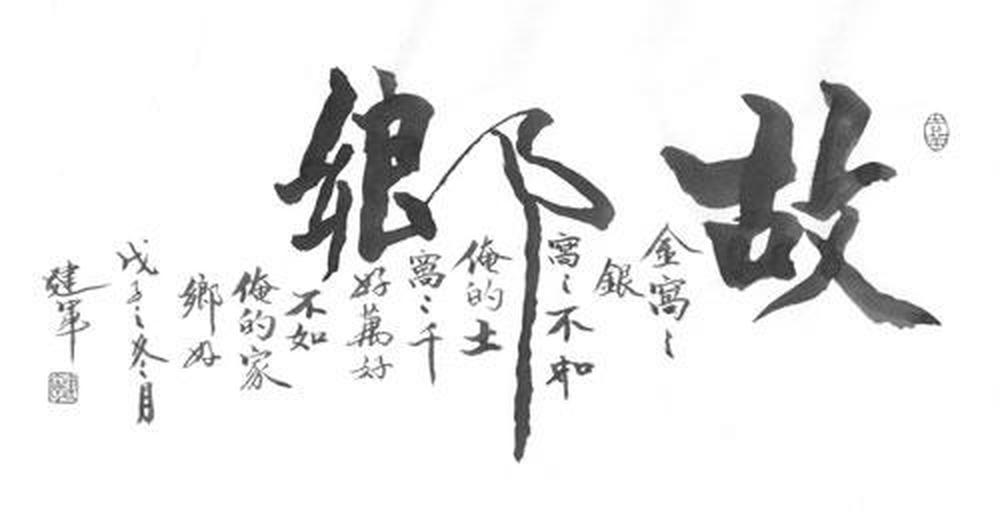 故鄉
金窩〻
銀
窩〻不如
俺的土
窩〻千
好萬好
不如
俺的家
鄉好
戊子之冬月
建軍